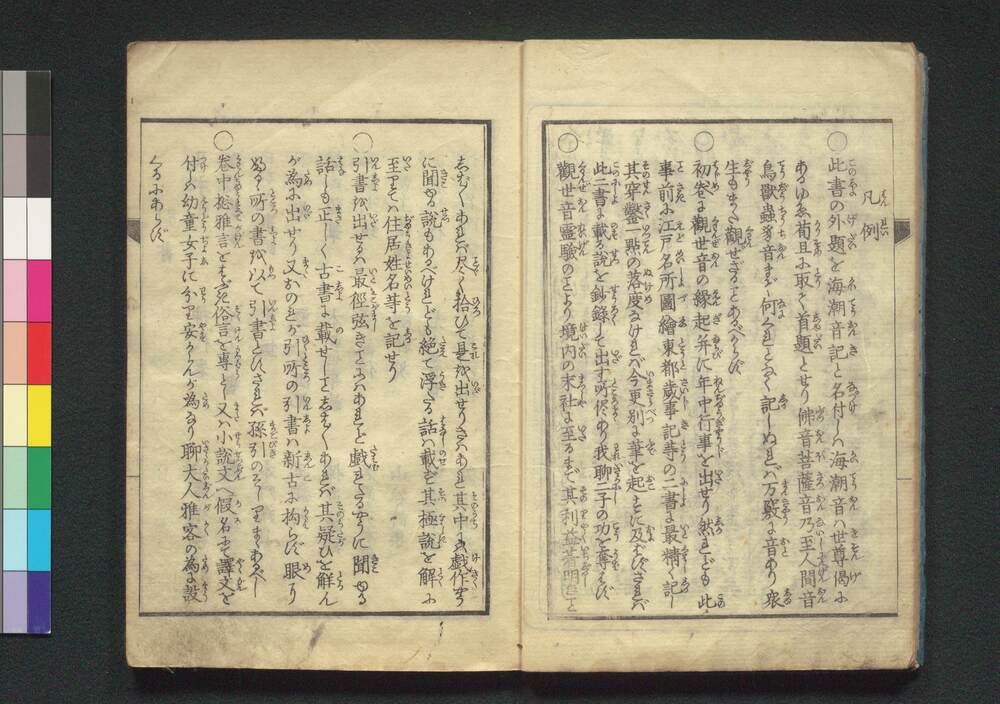 凡例
〇此書の外題を海潮音記と名付しハ海潮音ハ世尊偈に
あるゆゑ苟且に取て首題とせり佛音菩薩音乃至人間音
鳥獣蟲の音まで何くれとなく記しぬれバ万竅に音あり衆
生もまた觀せざることあるべからず
〇初巻に觀世音の縁起并に年中行事を出せり然れども此
事前に江戸名所圖繪東都歳事記等の二書に最精く記し
其穿鑿一點の落度なけれバ今更別に筆を起すに及ばざれバ
此二書に載る説を鈔録して出す所あり我聊二子の功を奪ハず
〇觀世音靈驗のことより境内の末社に至るまで其利益著明こと
しば〱あれバ尽く拾ひて是を出せりさハあれ其中にハ戯作めう
に聞ゆる説もあるべけれども絶て浮たる話ハ載ず其極説を解に
至りてハ住居姓名等を記せり
〇引書を出せるハ最徑弦きことにハあれど戯れたるやうに聞ゆる
話しも正しく古書に載せしことしば〱あれバ其疑ひを解ん
が為に出せり又おのれが引所の引書ハ新古に拘らず眼り
ぬる所の書を以て引書とハされバ孫引のそしりまゝあるべし
〇巻中総雅言をはぶき俗言を專とし又ハ小説文へ假名にて譯文を
付しハ幼童女子に分り安からんが為なり聊大人雅客の為に設
くるにあらず